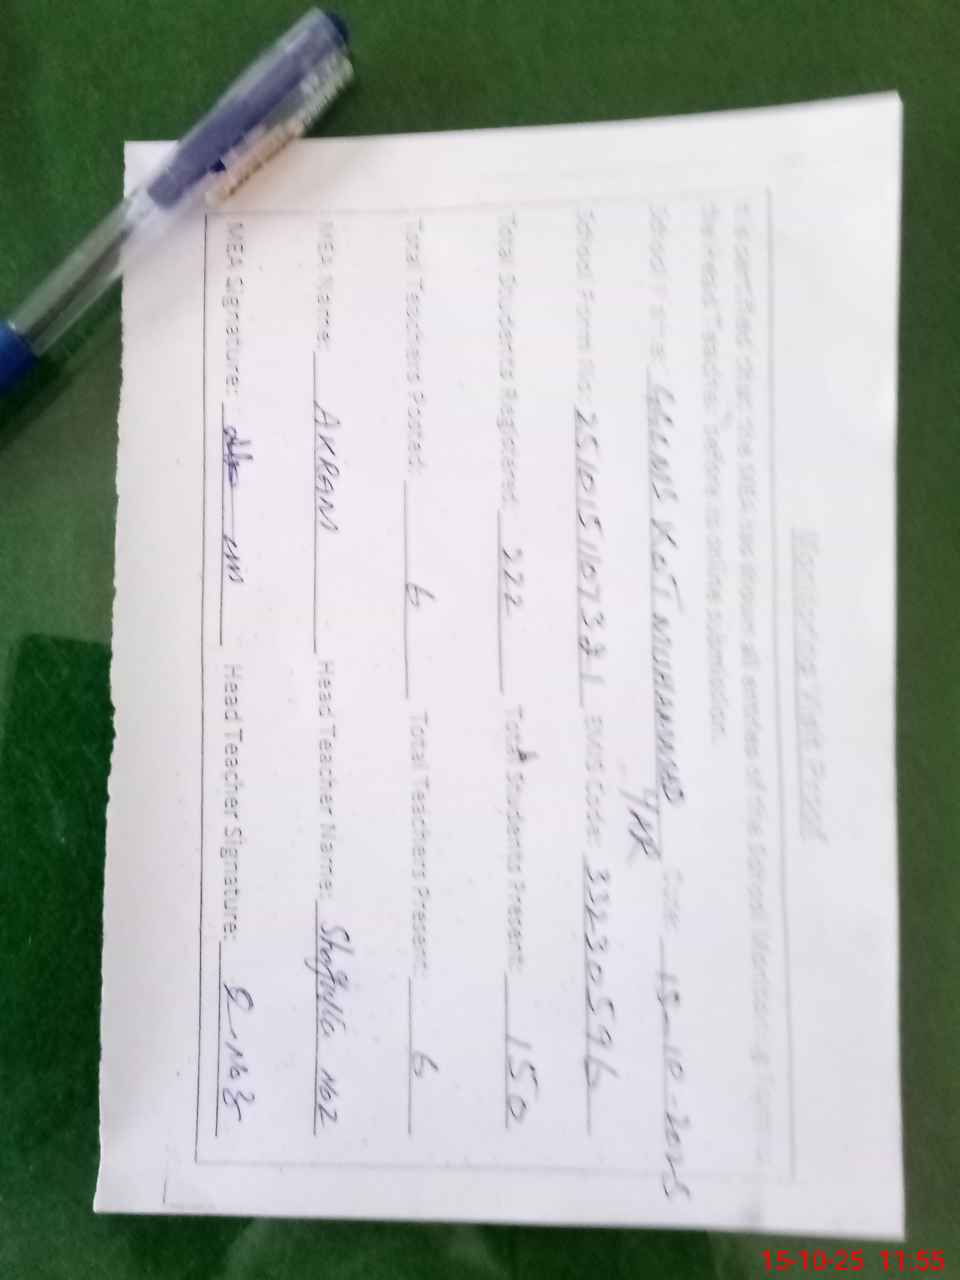 Monitoring Visit Proof
It is certified that the MEA has shown all entries of the School Monitoring Form to
the Head Teacher before its online submission.
School Name: KOT MUHAMMAD YAR Date: 15-10-2025
School Form No: EMIS Code: 33230596
Total Students Registered: 222 Total Students Present: 150
Total Teachers Posted: 6 Total Teachers Present: 6
MEA Name: AKRAM Head Teacher Name:
MEA Signature: Head Teacher Signature:
15-10-25 11:55